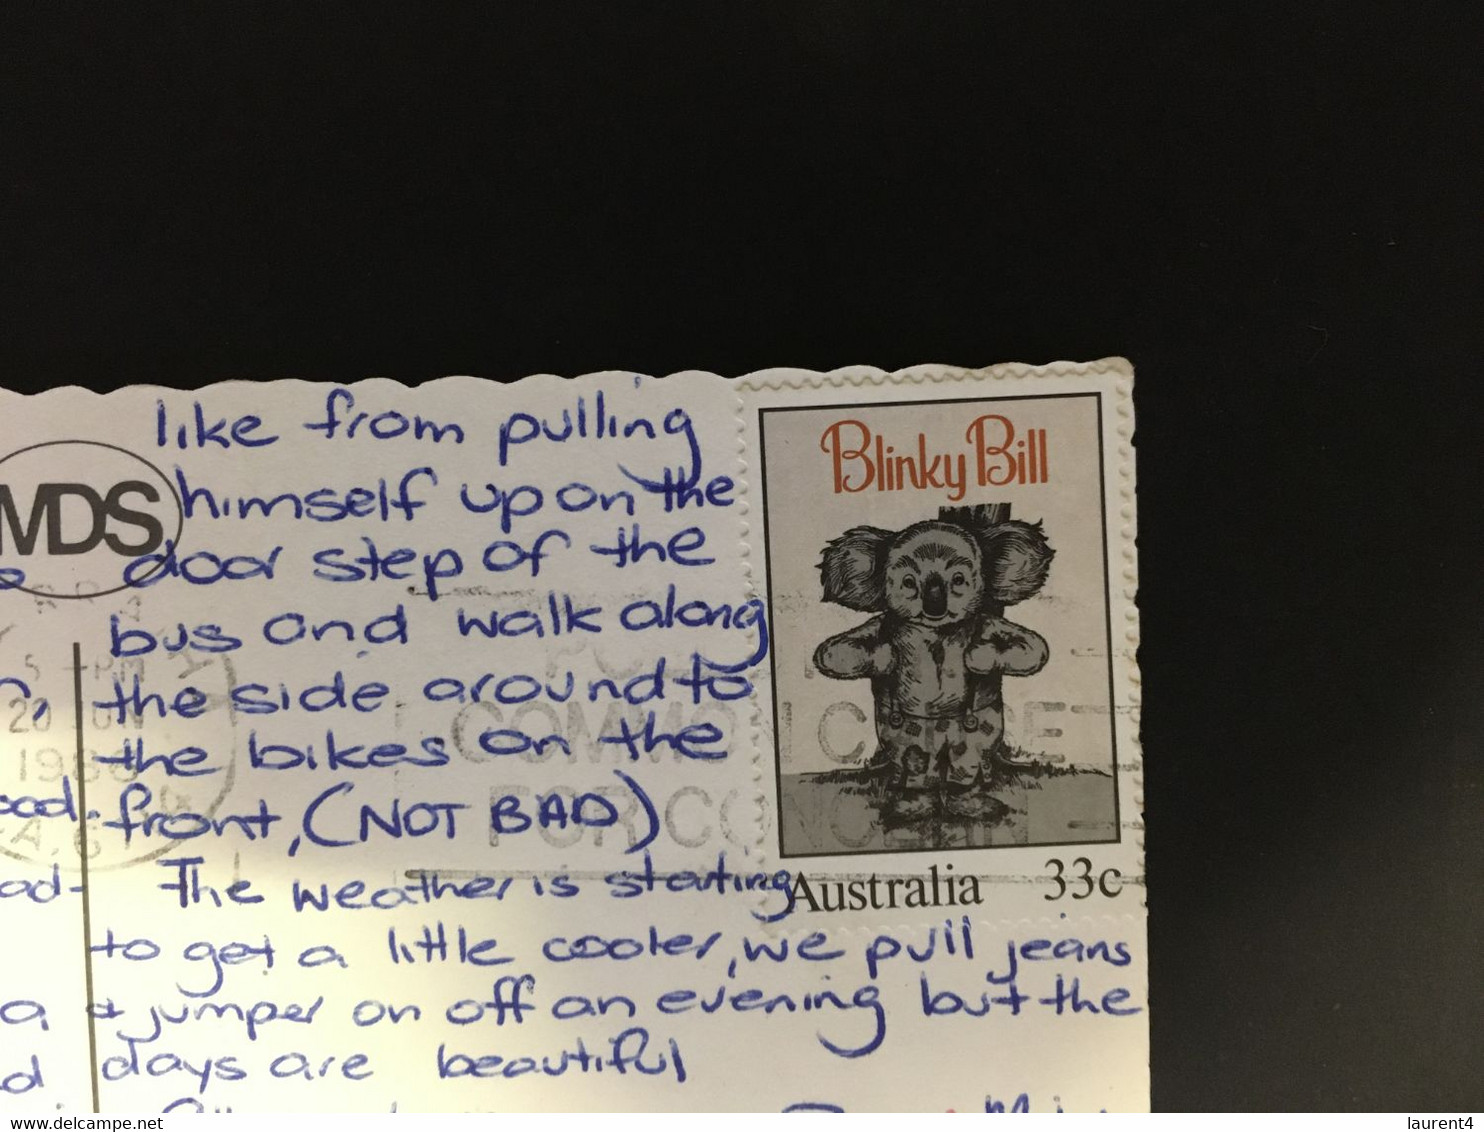 like from pulling
himself up on the
door step of the
bus and walk along
the side around to
the bikes on the
front, (NOT BAD)
The weather is starting
to get a little cooler, we pull jeans
& jumper on off an evening but the
days are beautiful
MDS
5 - PM
20 JUN
1986
COMMON SENSE
FOR CONCERN
Blinky Bill
Australia 33c
www.delcampe.net
laurent4